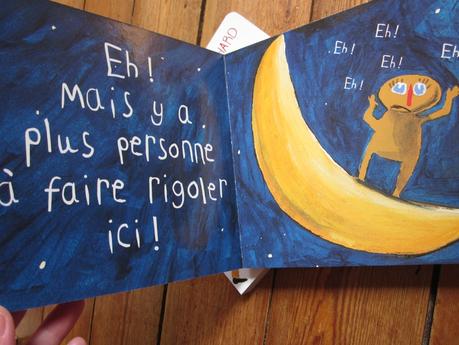 Eh!
Mais y a
plus personne
à faire rigoler
ici!
NARD
Eh!
Eh!
Eh!
Eh!
Eh!